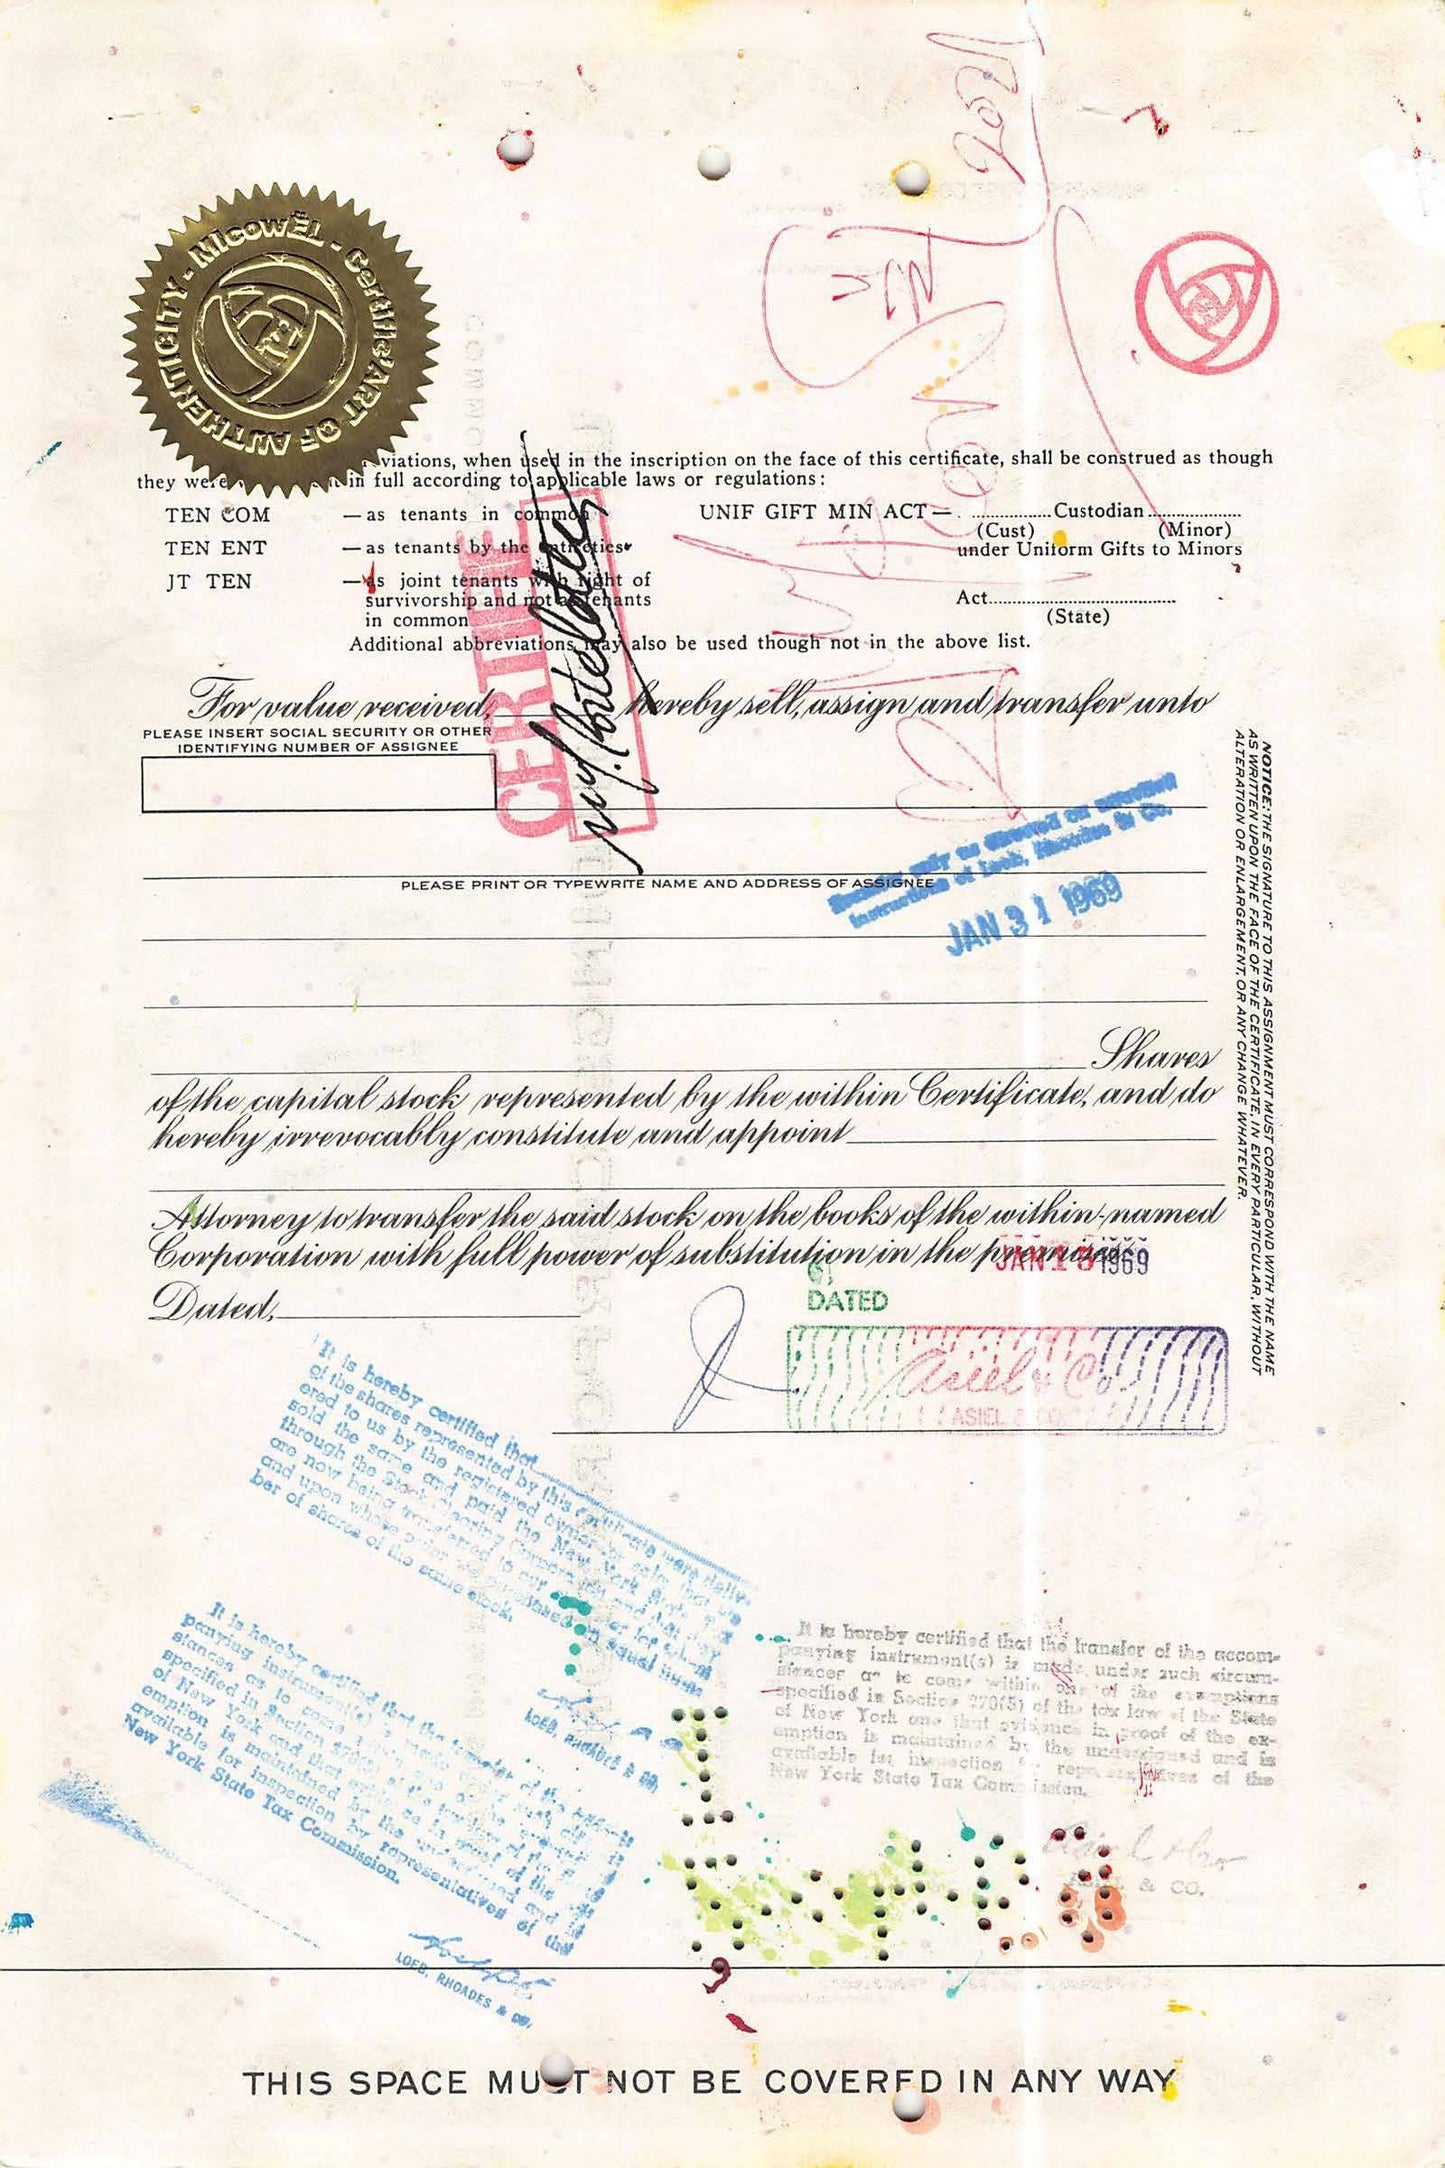 MICOWËL - Certific'ART OF AUTHENTICITY -
viations, when used in the inscription on the face of this certificate, shall be construed as though
they were in full according to applicable laws or regulations:
TEN COM — as tenants in common
TEN ENT — as tenants by the entireties
JT TEN — as joint tenants with right of
survivorship and not as tenants
in common
UNIF GIFT MIN ACT — Custodian
(Cust) (Minor)
under Uniform Gifts to Minors
Act
(State)
Additional abbreviations may also be used though not in the above list.
CERTIFIE
For value received, hereby sell, assign and transfer unto
PLEASE INSERT SOCIAL SECURITY OR OTHER
IDENTIFYING NUMBER OF ASSIGNEE
only as directed on
instructions of Loeb, Rhoades & Co.
JAN 31 1969
PLEASE PRINT OR TYPEWRITE NAME AND ADDRESS OF ASSIGNEE
NOTICE: THE SIGNATURE TO THIS ASSIGNMENT MUST CORRESPOND WITH THE NAME
AS WRITTEN UPON THE FACE OF THE CERTIFICATE, IN EVERY PARTICULAR, WITHOUT
ALTERATION OR ENLARGEMENT, OR ANY CHANGE WHATEVER.
Shares
of the capital stock represented by the within Certificate, and do
hereby irrevocably constitute and appoint
Attorney to transfer the said stock on the books of the within-named
Corporation with full power of substitution in the premises
JAN 1969
Dated,
DATED
Asiel & Co.
ASIEL & CO.
It is hereby certified that
of the shares represented by this certificate were deliv-
ered to us by the registered owner for sale that we
sold the same and paid the New York State
through the Stock Clearing Corporation and that they
are now being transferred to our order for whom
and upon whose order we purchased an equal num-
ber of shares of the same stock.
LOEB, RHOADES & CO.
It is hereby certified that the transfer of the accom-
panying instrument(s) is made under such circum-
stances as to come within one of the exemptions
specified in Section 270(5) of the tax law of the State
of New York and that evidence in proof of the ex-
emption is maintained by the undersigned and is
available for inspection by representatives of the
New York State Tax Commission.
LOEB, RHOADES & CO.
It is hereby certified that the transfer of the accom-
panying instrument(s) is made under such circum-
stances as to come within one of the exemptions
specified in Section 270(5) of the tax law of the State
of New York and that evidence in proof of the ex-
emption is maintained by the undersigned and is
available for inspection by representatives of the
New York State Tax Commission.
& CO.
THIS SPACE MUST NOT BE COVERED IN ANY WAY